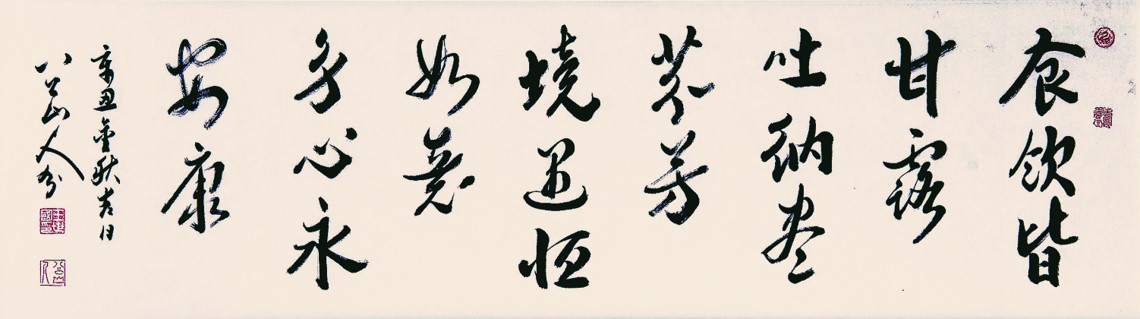 食饮皆
甘露
吐纳尽
芬芳
境遇恒
如意
身心永
安康
辛丑金秋吉日
八公山人书